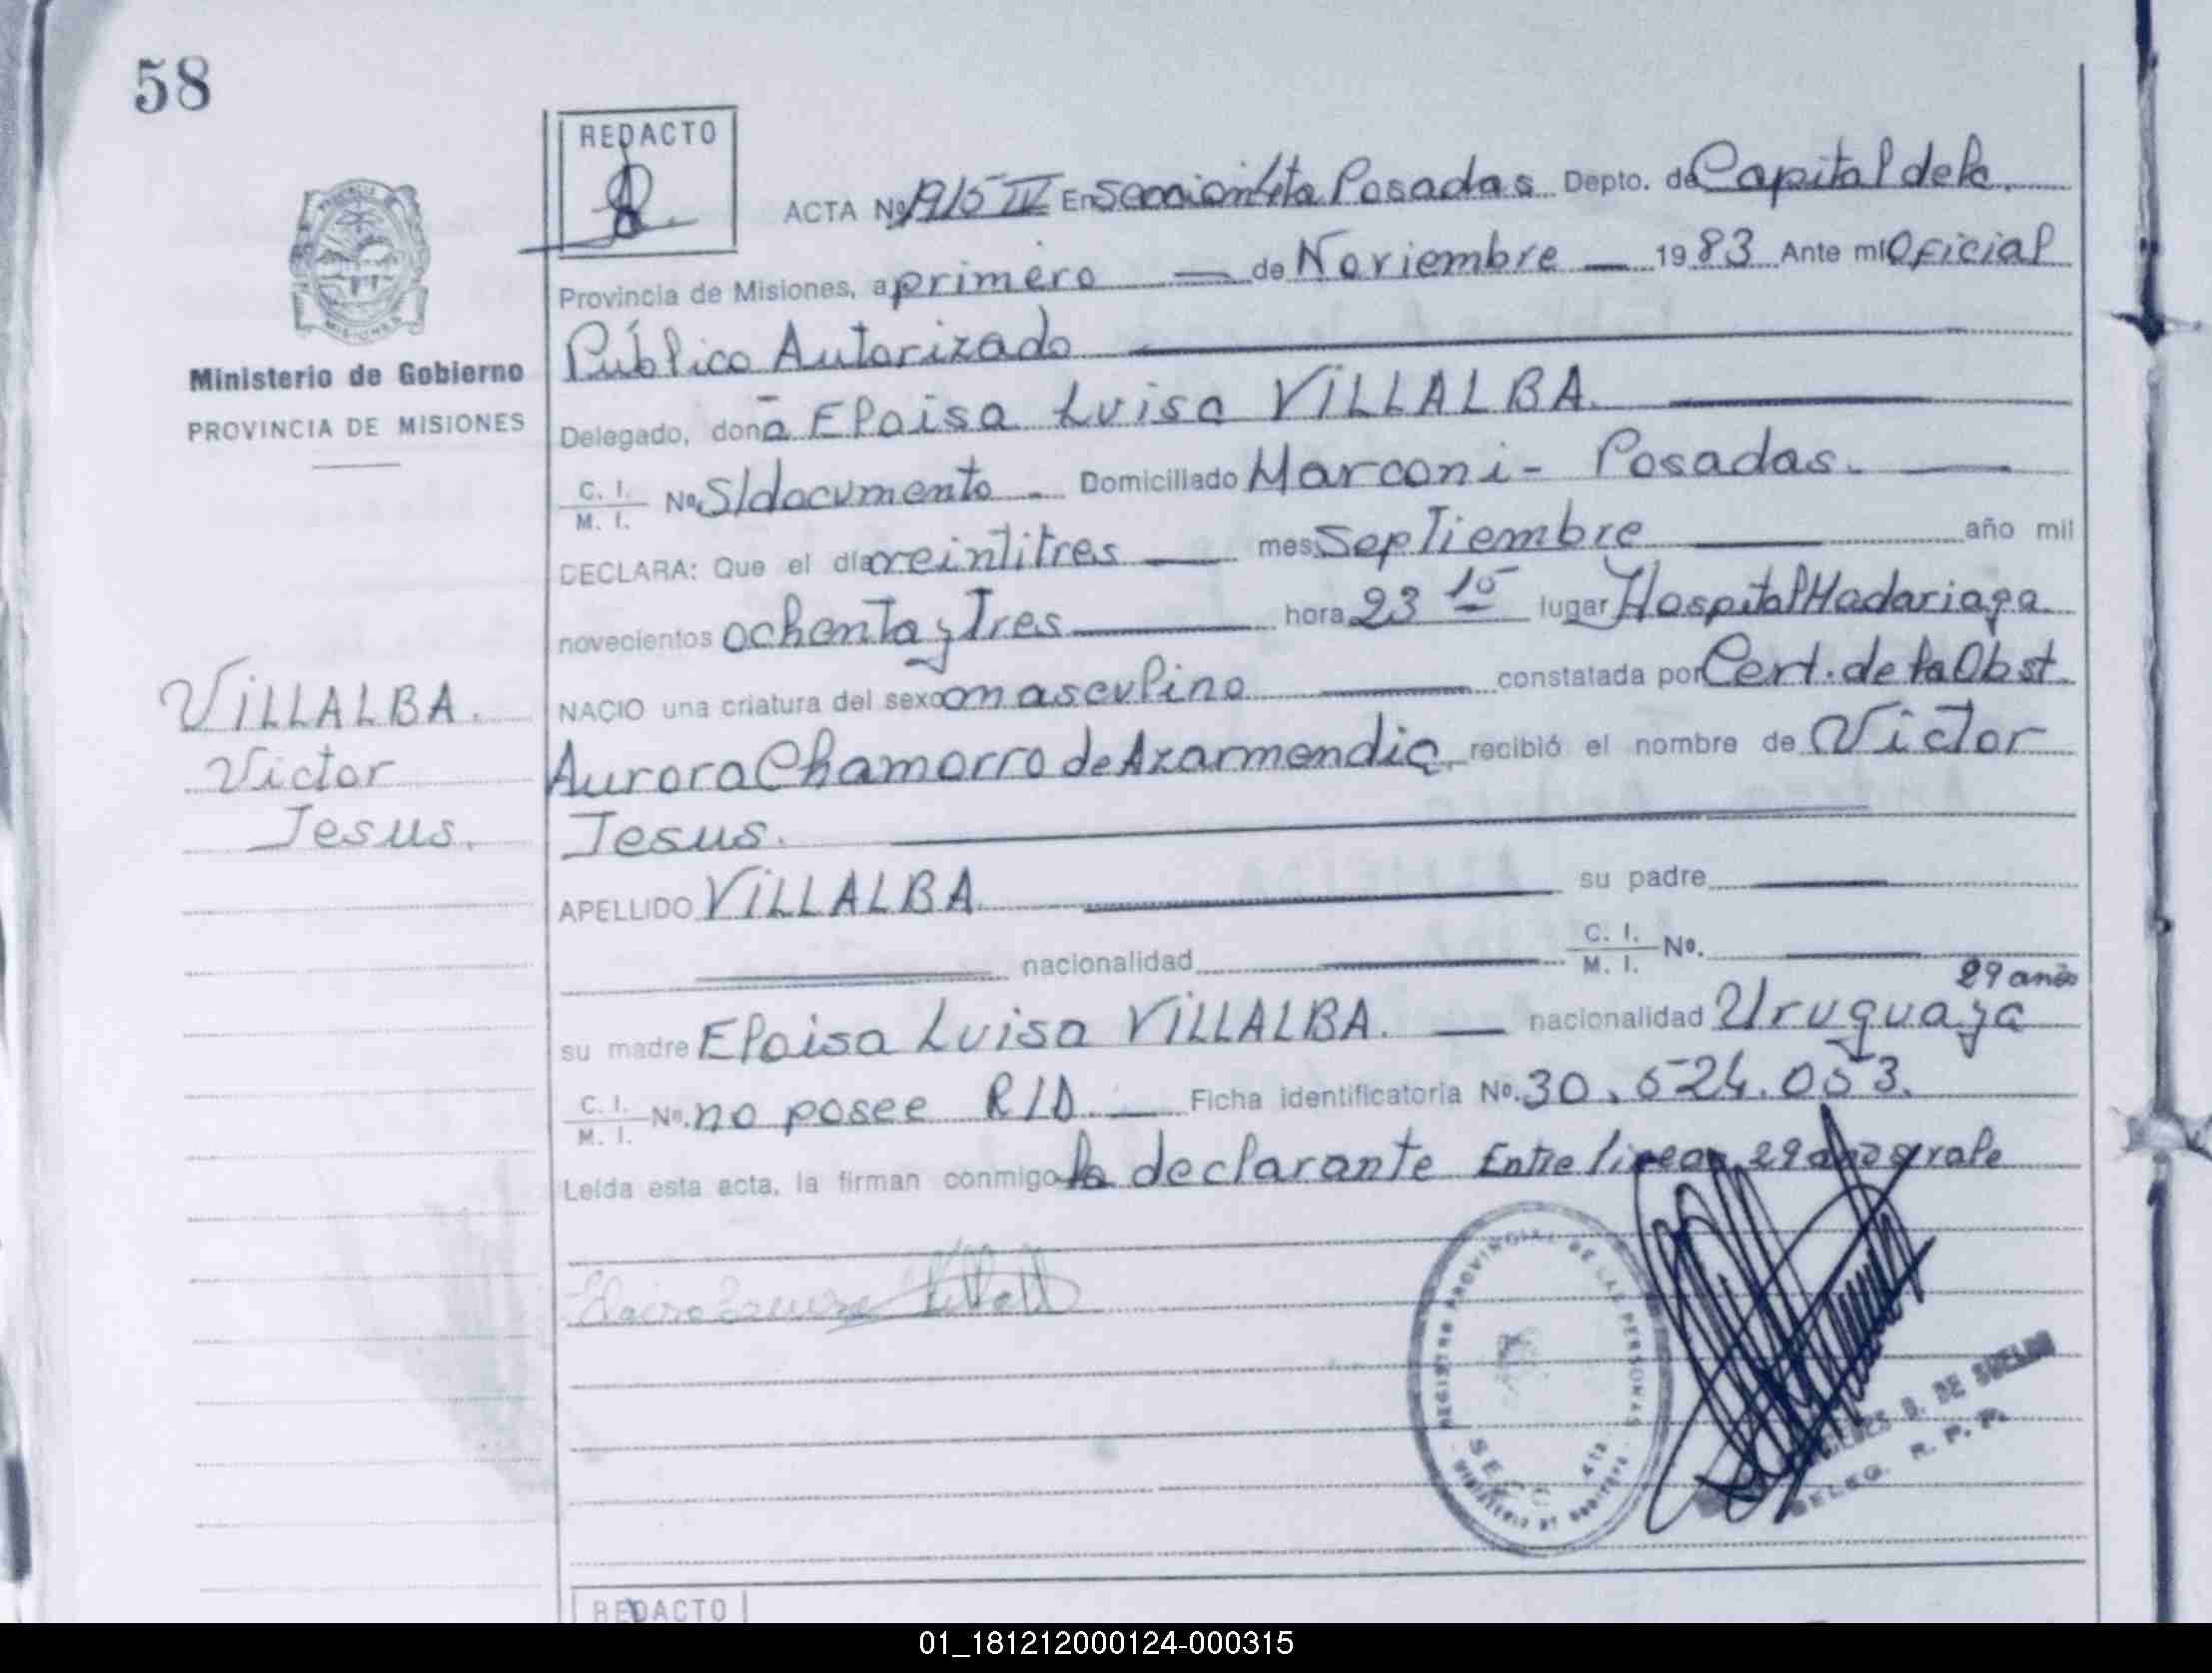 58
REDACTO
ACTA Nº 1915 IV En Seccion 4ta Posadas Depto. de Capital de la
Provincia de Misiones, a primero de Noviembre 1983 Ante mi Oficial
Público Autorizado
Ministerio de Gobierno
PROVINCIA DE MISIONES
Delegado, doña Eloisa Luisa VILLALBA.
C. I. M. I. Nº S/documento - Domiciliado Marconi - Posadas.
DECLARA: Que el día veintitres mes Septiembre año mil
novecientos ochenta y Tres hora 23 10 lugar Hospital Madariaga
NACIO una criatura del sexo masculino constatada por Cert. de la Obst.
Aurora Chamorro de Azarmendia, recibió el nombre de Victor
Jesus.
VILLALBA.
Victor
Jesus.
APELLIDO VILLALBA. su padre
nacionalidad C. I. M. I. Nº.
29 años
su madre Eloisa Luisa VILLALBA. nacionalidad Uruguaya
C. I. M. I. Nº. no posee R/D. Ficha identificatoria Nº. 30.524.053.
Leída esta acta, la firman conmigo la declarante Entre lineas 29 años vale
REGISTRO PROVINCIAL DE LAS PERSONAS
SECC 4ta
MINISTERIO DE GOBIERNO
B. DE
DELEG. R. P. P.
REDACTO
01_181212000124-000315